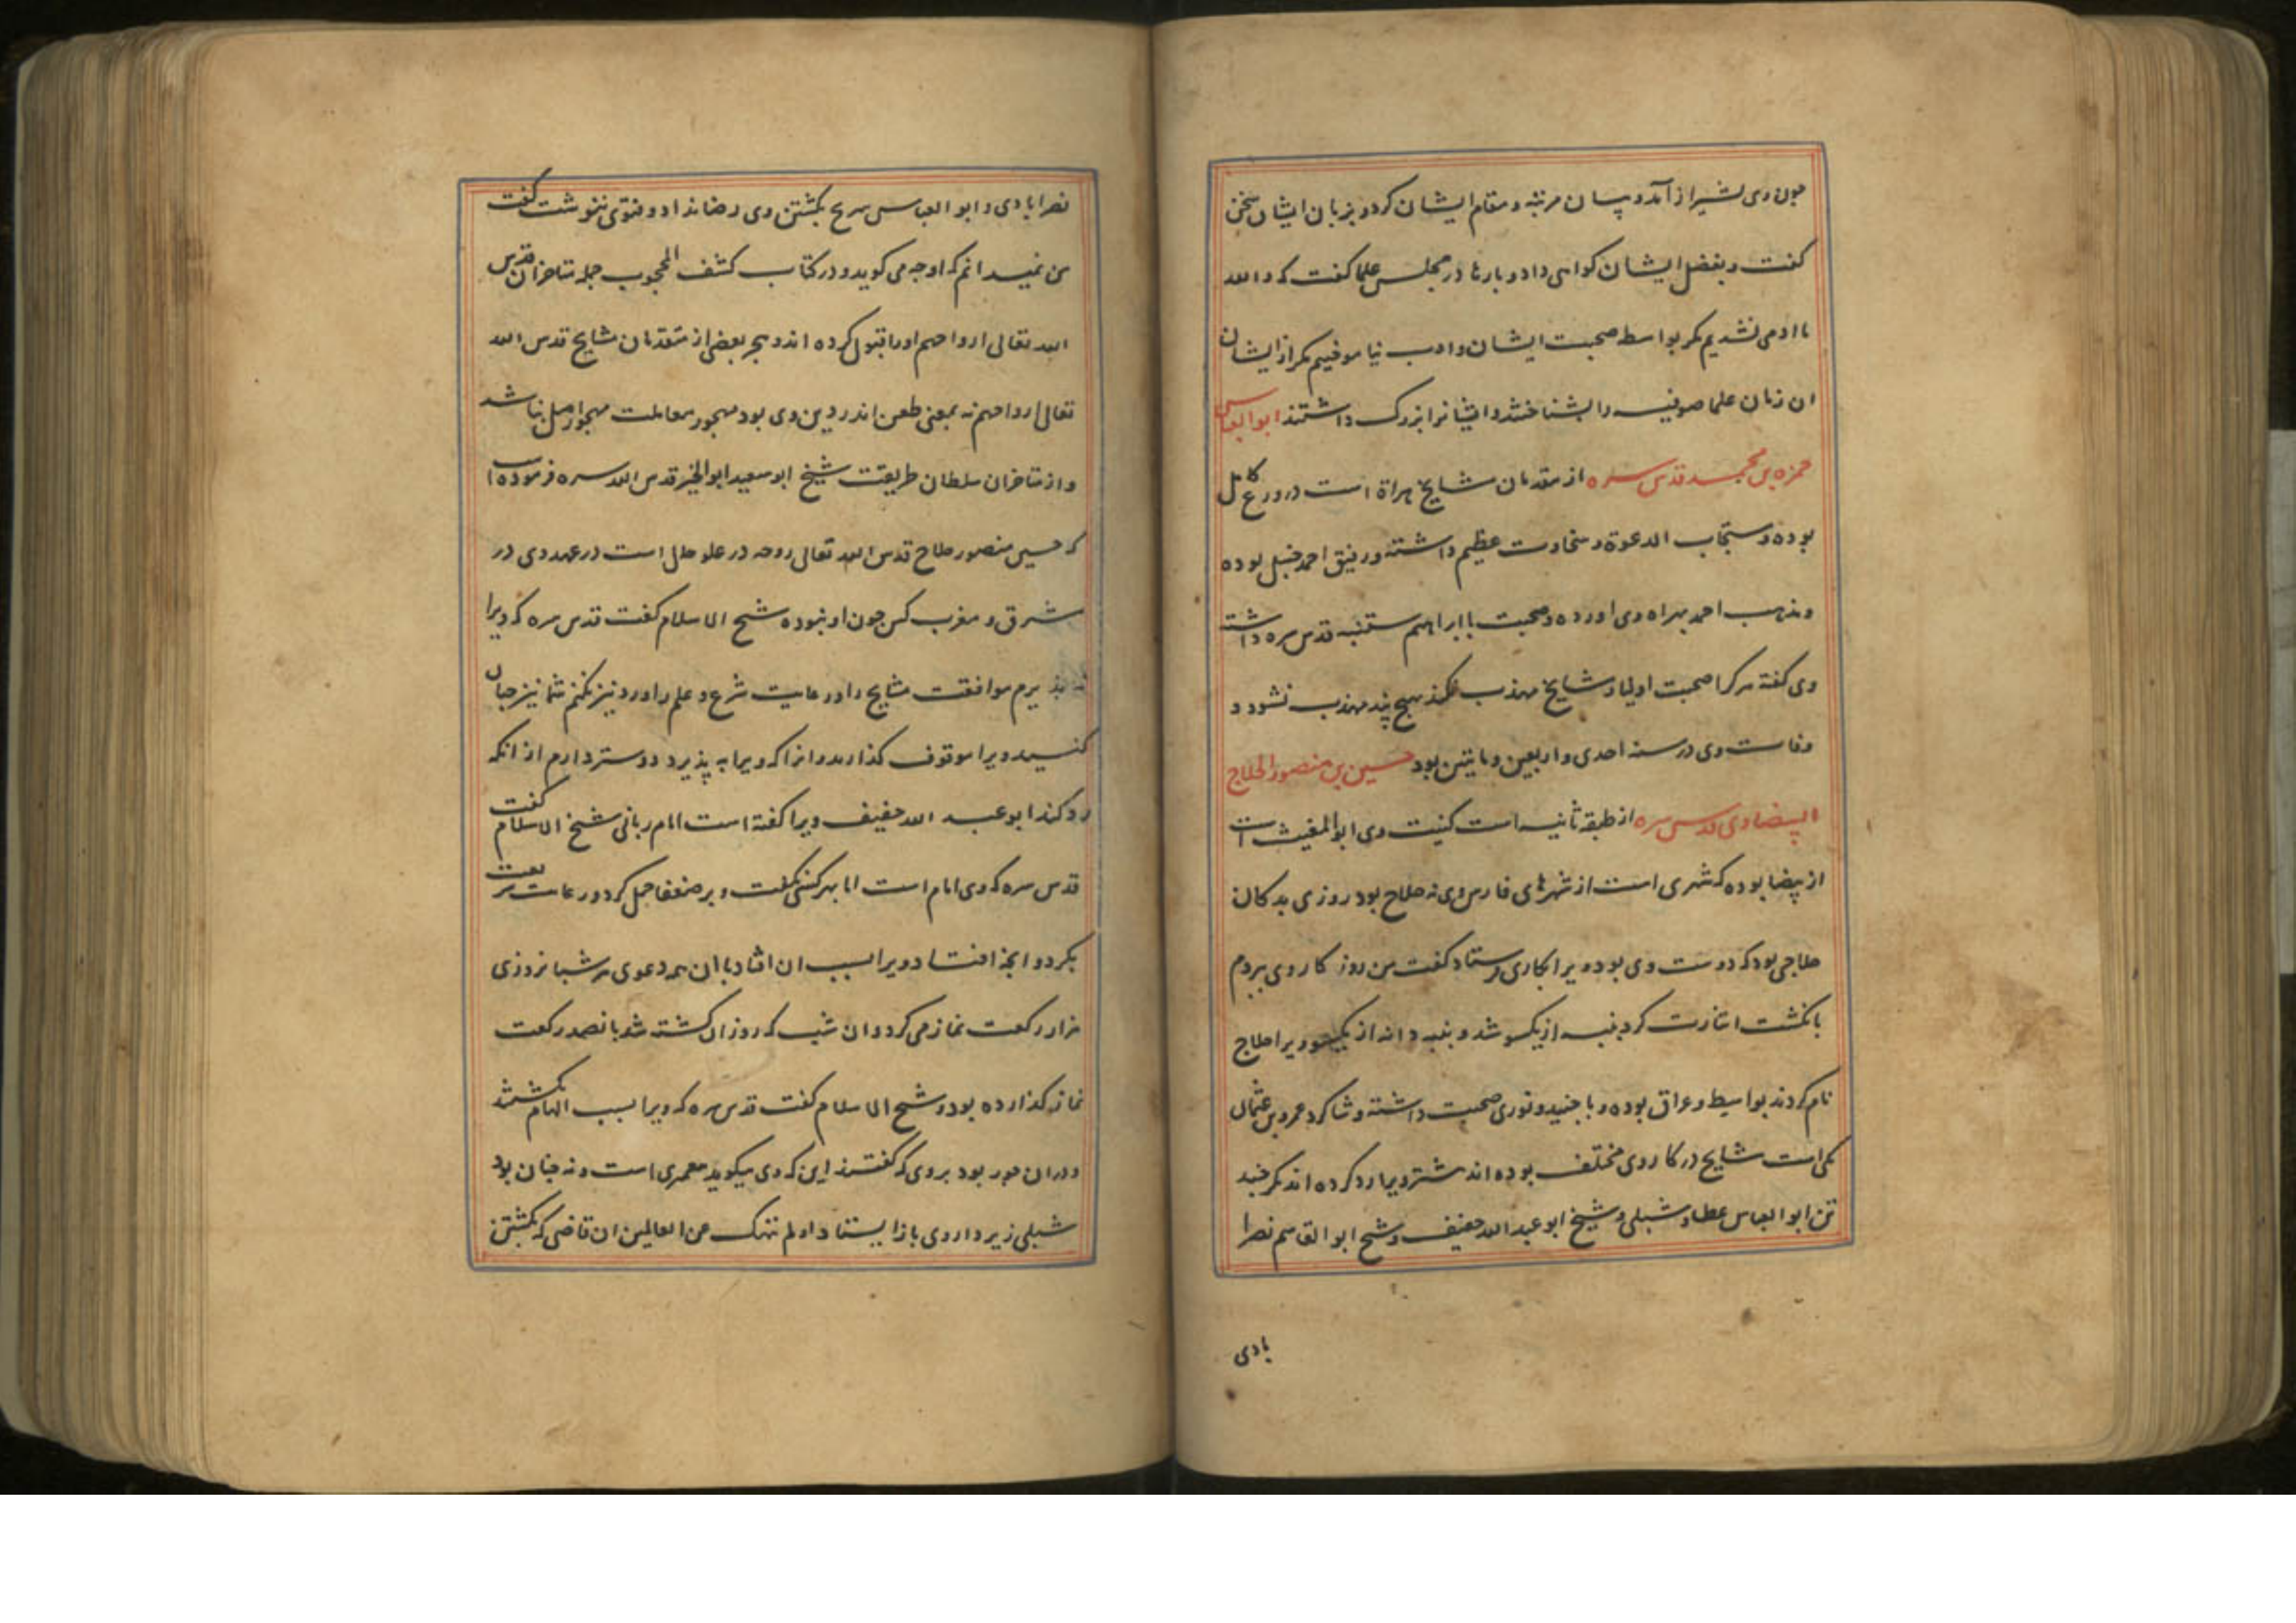 چون وی بشیراز آمد و بسان مرتبه و مقام ایشان کرد و بزبان ایشان سخن
کفت و بفضل ایشان کواهی داد و بارها در مجلس علما کفت که والله
ما ادمی نشدیم مکر بواسطه صحبت ایشان و ادب نیاموختیم مکر از ایشان
ان زمان علما صوفیه را بشناختند و ایشانرا بزرک داشتند ابوالعباس
حمزه بن محمد قدس سره از متقدمان مشایخ هراة است در ورع کامل
بوده و مستجاب الدعوة و سخاوت عظیم داشته و رفیق احمد حنبل بوده
و مذهب احمد بهراه وی اورده و صحبت با ابراهیم ستنبه قدس سره داشته
وی کفته هرکرا صحبت اولیا و مشایخ مهذب نکند بهیچ پند مهذب نشود و
وفات وی در سنه احدی و اربعین و مایتین بود حسین بن منصور الحلاج
البیضاوی قدس سره از طبقه ثانیه است کنیت وی ابوالمغیث است
از بیضا بوده که شهری است از شهرهای فارس وی نه حلاج بود روزی بدکان
حلاجی بود که دوست وی بود ویرا بکاری فرستاد کفت من روزکار وی ببردم
بانکشت اشارت کرد پنبه از یکسو شد و پنبه دانه از یکسو ویرا حلاج
نام کردند بواسط و عراق بوده و با جنید و نوری صحبت داشته و شاکرد عمرو بن عثمان
مکی است مشایخ در کار وی مختلف بوده اند بیشتر ویرا رد کرده اند مکر چند
تن ابوالعباس عطا و شبلی و شیخ ابو عبدالله خفیف و شیخ ابوالقاسم نصرا
بادی
نصرابادی و ابو العباس سریج بکشتن وی رضا نداد و فتوی ننوشت کفت
من نمیدانم که او چه می کوید و در کتاب کشف المحجوب جمله متاخران قدس
الله تعالی ارواحهم اورا قبول کرده اند و هجر بعضی از متقدمان مشایخ قدس الله
تعالی ارواحهم نه بمعنی طعن اندر دین وی بود مهجور معاملت مهجور اصل نباشد
و از متاخران سلطان طریقت شیخ ابو سعید ابوالخیر قدس الله سره فرموده
که حسین منصور حلاج قدس الله تعالی روحه در علو حال است در عهد وی در
مشرق و مغرب کس چون او نبوده شیخ الاسلام کفت قدس سره که ویرا
نه پذیرم موافقت مشایخ را و رعایت شرع و علم را و رد نیز نکنم شما نیز چنان
کنید و ویرا موقوف کذارید و انرا که ویرا به پذیرد دوستر دارم از انکه
رد کند ابو عبد الله خفیف ویرا کفته است امام ربانی شیخ الاسلام کفت
قدس سره که وی امام است اما بهر کسی بکفت و بر ضعفا حمل کرد و رعایت شریعت
نکرد و انچه افتاد ویرا بسبب ان افتاد با ان همه دعوی هر شبانروزی
هزار رکعت نماز می کرد و ان شب که روز ان کشته شد پانصد رکعت
نماز کذارده بود و شیخ الاسلام کفت قدس سره که ویرا بسبب الهام بکشتند
و دران جور بود بر وی که کفتند این که وی میکوید پیغمبری است و نه چنان بود
شبلی زیر دار وی باز ایستاد او لم ننهک عن العالمین ان قاضی که بکشتن